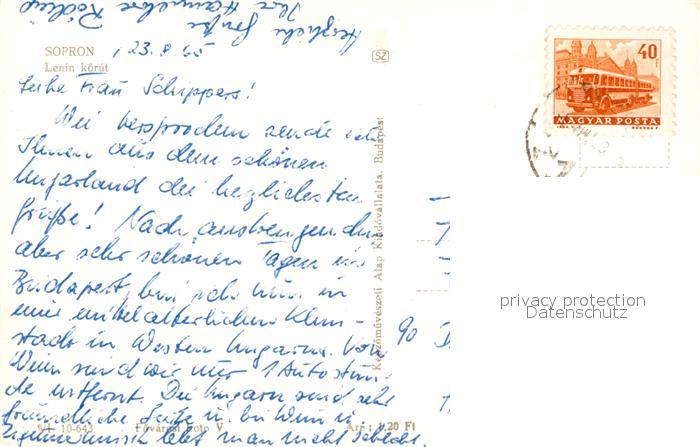 Herzliche Grüße
Ihre Hannelore
SOPRON
Lenin körút
, 23.8.65
SZ
40 F
MAGYAR POSTA
Liebe Frau Schippers!
Wie versprochen sende ich
Ihnen aus dem schönen
Ungarland die herzlichsten
Grüße! Nach anstrengenden
aber sehr schönen Tagen in
Budapest, bin ich nun in
einer mittelalterlichen Klein-
stadt in Western Ungarns. Von
Wien sind wir nur 1 Autostun-
de entfernt. Die Ungarn sind sehr
freundliche Leute u. bei Wein u.
Zigeunermusik lebt man nicht schlecht.
Képzőművészeti Alap Kiadóvállalata, Budapest
90
10-643
Fővárosi Foto V.
Ára: 1,20 Ft
privacy protection
Datenschutz